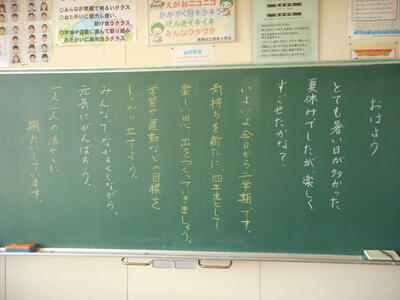 ◎みんなが笑顔で明るいクラス
◎おたがいに協力し合い、
助け合うクラス
◎学習や運動に進んで取り組み
おたがいに高め合うクラス
えがおニコニコ
かがやく目キラキラ
げんきイキイキ
みんなワクワク
おはよう
とても暑い日が多かった
夏休みでしたが、楽しく
すごせたかな？
いよいよ今日から二学期です。
気持ちを新たに、四年生として
楽しい思い出をつくっていきましょう。
学習や運動などの目標を
しっかり立てよう。
みんなでなかよくしながら、
元気にがんばろう。
一人一人の活やくに
期たいしています。